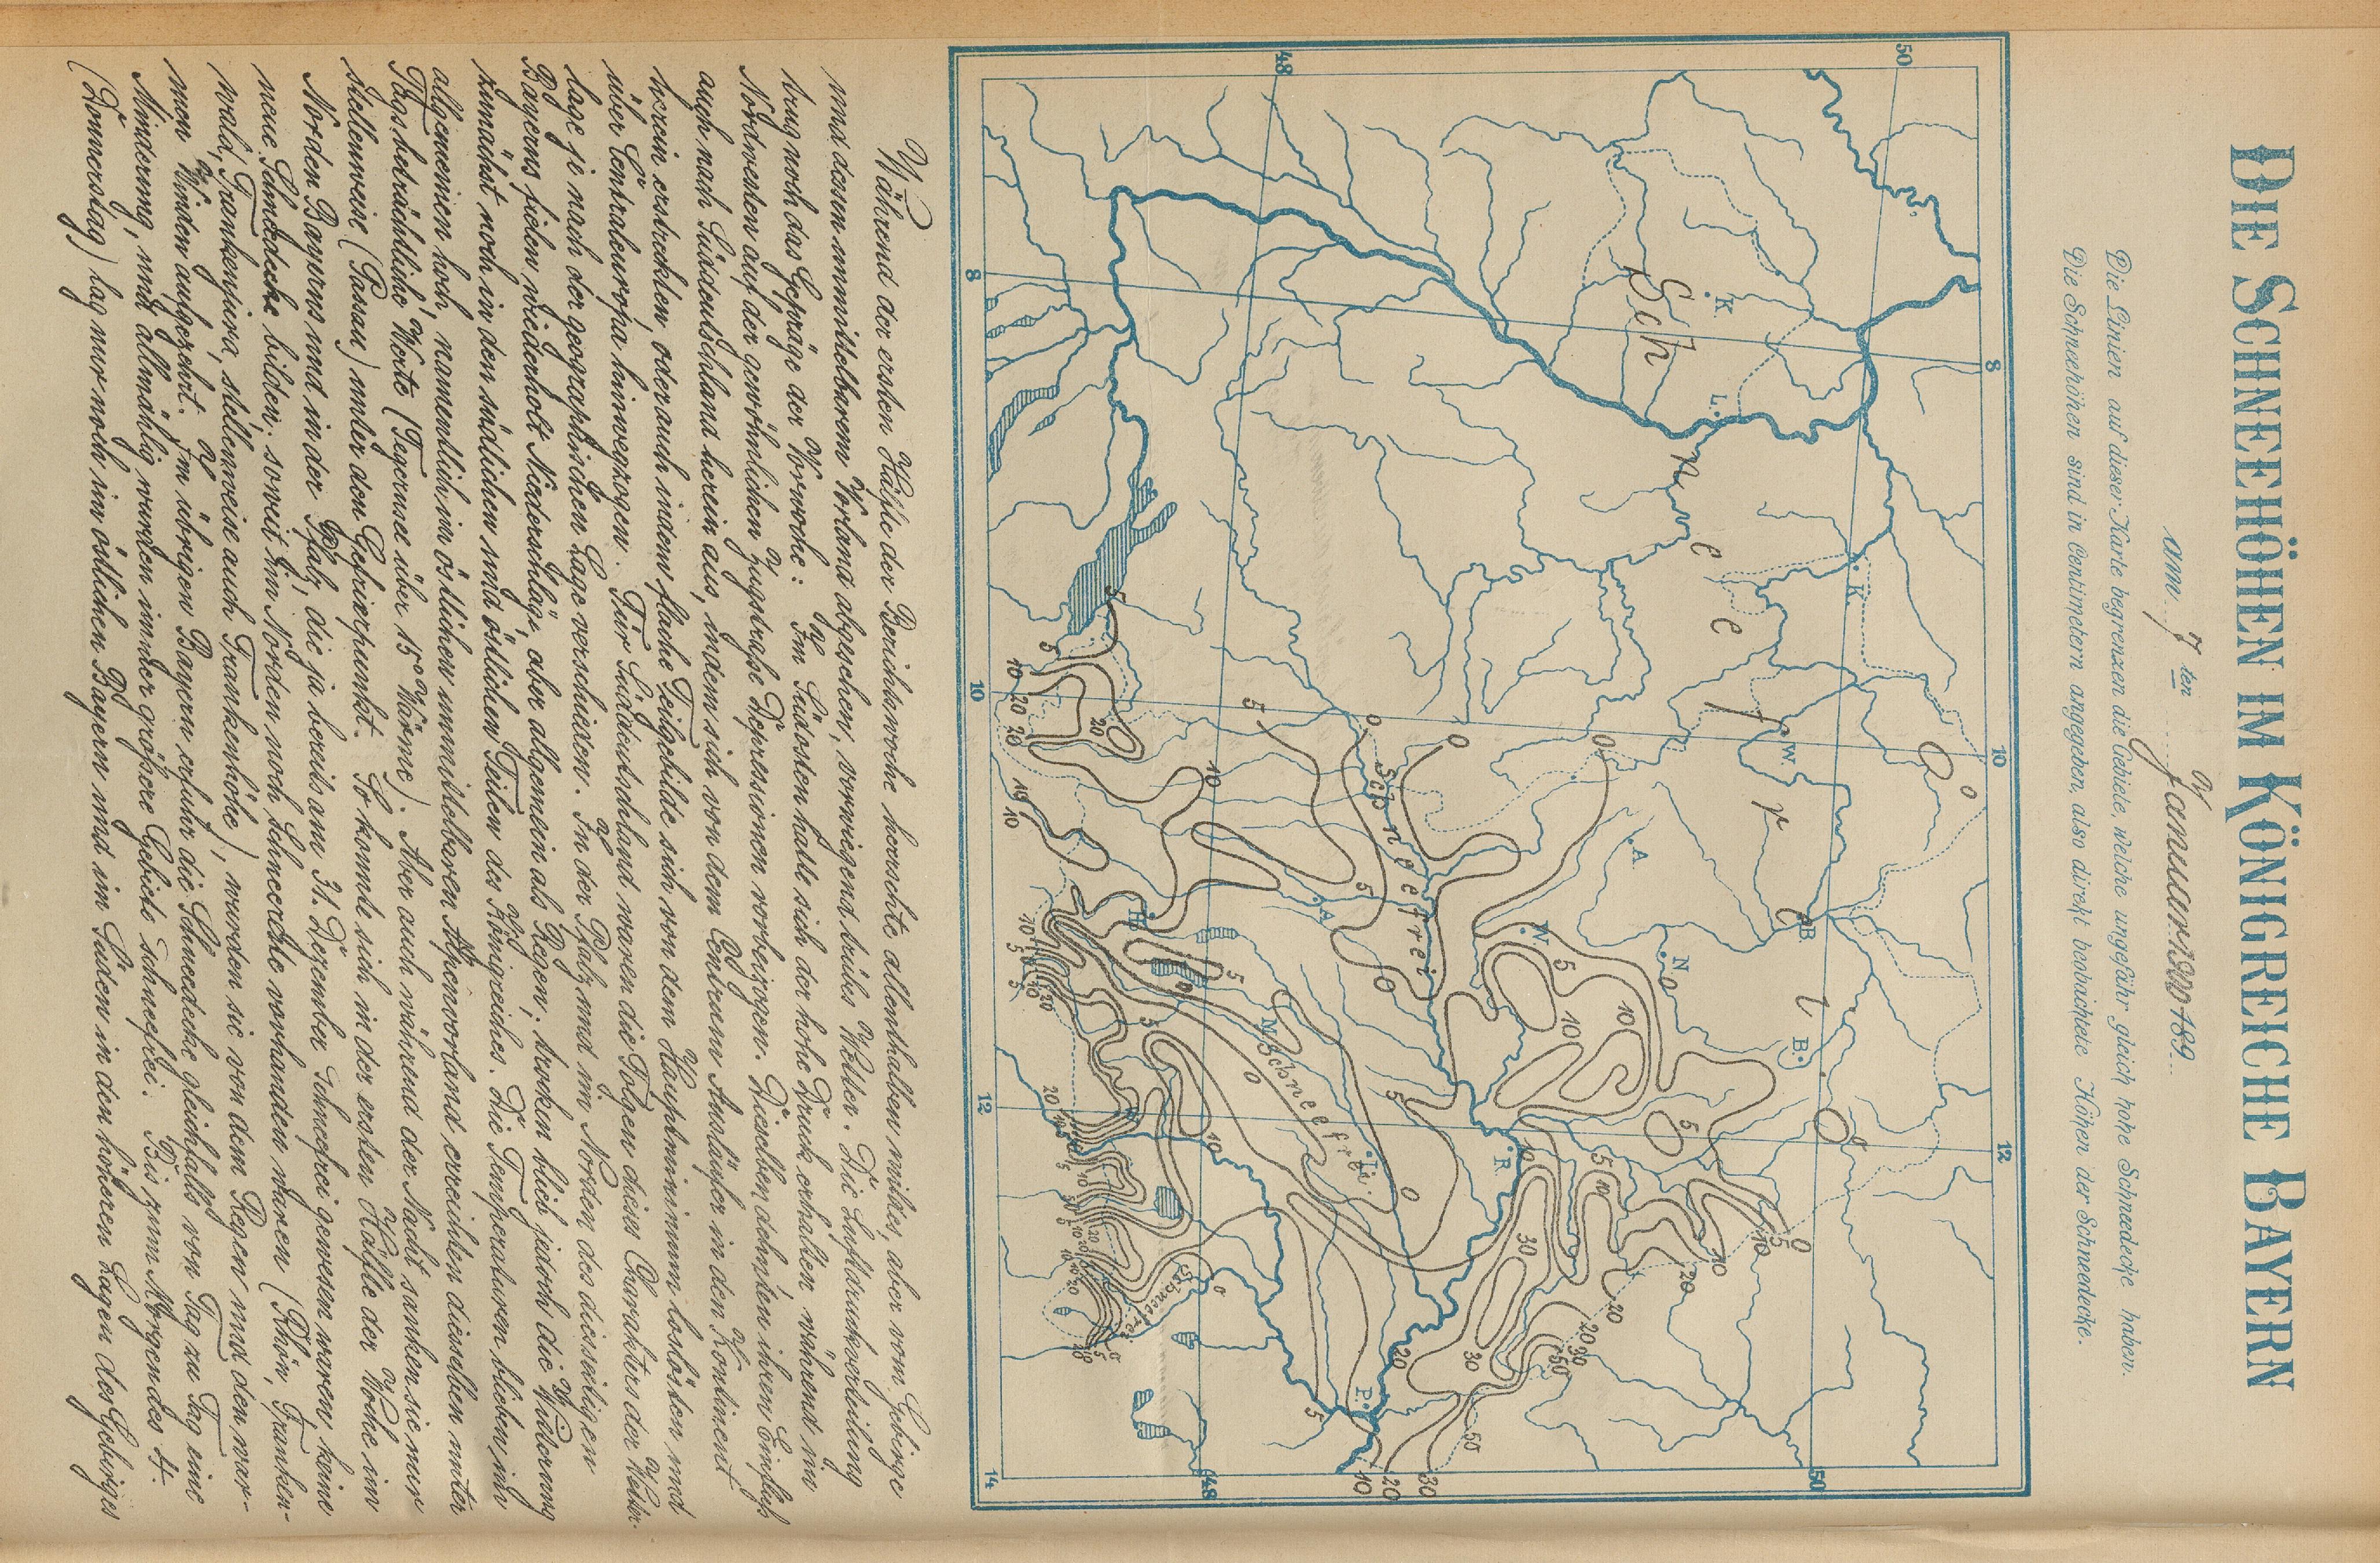 DIE SCHNEEHÖHEN IM KÖNIGREICHE BAYERN
am 7ten Januar 1900 189
Die Linien auf dieser Karte begrenzen die Gebiete, welche ungefähr gleich hohe Schneedecke haben.
Die Schneehöhen sind in Centimetern angegeben, also direkt beobachtete Höhen der Schneedecke.
50
8
10
12
50
Schneefrei
K.
L.
K.
W.
B.
B.
A.
N.
N.
R.
Schneefrei
A.
M.
Schneefrei
L.
P.
Schneefrei
48
8
10
12
14
48
Während der ersten Hälfte der Berichtswoche herrschte allenthalben mildes, aber vom Gebirge
und dessen unmittelbarem Vorland abgesehen, vorwiegend trübes Wetter. Die Luftdruckverteilung
trug noch das Gepräge der Vorwoche: Im Südosten hatte sich der hohe Druck erhalten während im
Nordwesten auf der gewöhnlichen Zugstraße Depressionen vorbeizogen. Dieselben dehnten ihren Einfluß
auch nach Süddeutschland herein aus, indem sich von dem Centrum Ausläufer in den Kontinent
herein erstreckten, oder auch indem flache Teilgebilde sich von dem Hauptminimum loslösten und
über Centraleuropa hinwegzogen. Für Süddeutschland waren die Folgen dieses Charakters der Wetter-
lage je nach der geographischen Lage verschieden. In der Pfalz und im Norden des diesseitigen
Bayerns fielen wiederholt Niederschläge, aber allgemein als Regen; trocken blieb jedoch die Witterung
zunächst noch in den südlichen und östlichen Teilen des Königreiches. Die Temperaturen blieben im
allgemeinen hoch, namentlich im östlichen unmittelbaren Alpenvorland erreichten dieselben unter
Tags beträchtliche Werte (Tegernsee über 15° Wärme). Aber auch während der Nacht sanken sie nur
stellenweise (Passau) unter den Gefrierpunkt. So konnte sich in der ersten Hälfte der Woche im
Norden Bayerns und in der Pfalz, die ja bereits am 31. Dezember schneefrei gewesen waren, keine
neue Schneedecke bilden; soweit im Norden noch Schneereste vorhanden waren (Rhön, Franken-
wald, Frankenjura, stellenweise auch Frankenhöhe), wurden sie von dem Regen und den war-
men Winden aufgezehrt. Im übrigen Bayern erfuhr die Schneedecke gleichfalls von Tag zu Tag eine
Minderung, und allmählig wurden immer größere Gebiete schneefrei. Bis zum Morgen des 4.
(Donnerstag) lag nur noch im östlichen Bayern und im Süden in den höheren Lagen des Gebirges